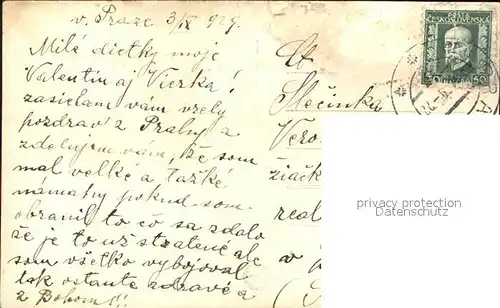 v. Praze 3/IX 929.
Milé dietky moje
Valentin aj Vierka!
zasielam vám vrelý
pozdrav z Prahy a
zdelujem vám, že som
mal velké a tažké
námahy pokud som
obranil to čo sa zdalo
že je to už stratené ale
som všetko vybojoval
tak ostante zdravé a
z Bohom!!!
Ct
Slečinka
Vero
žiačk
real
v
POŠTA
ČESKOSLOVENSKÁ
50 50
privacy protection
Datenschutz